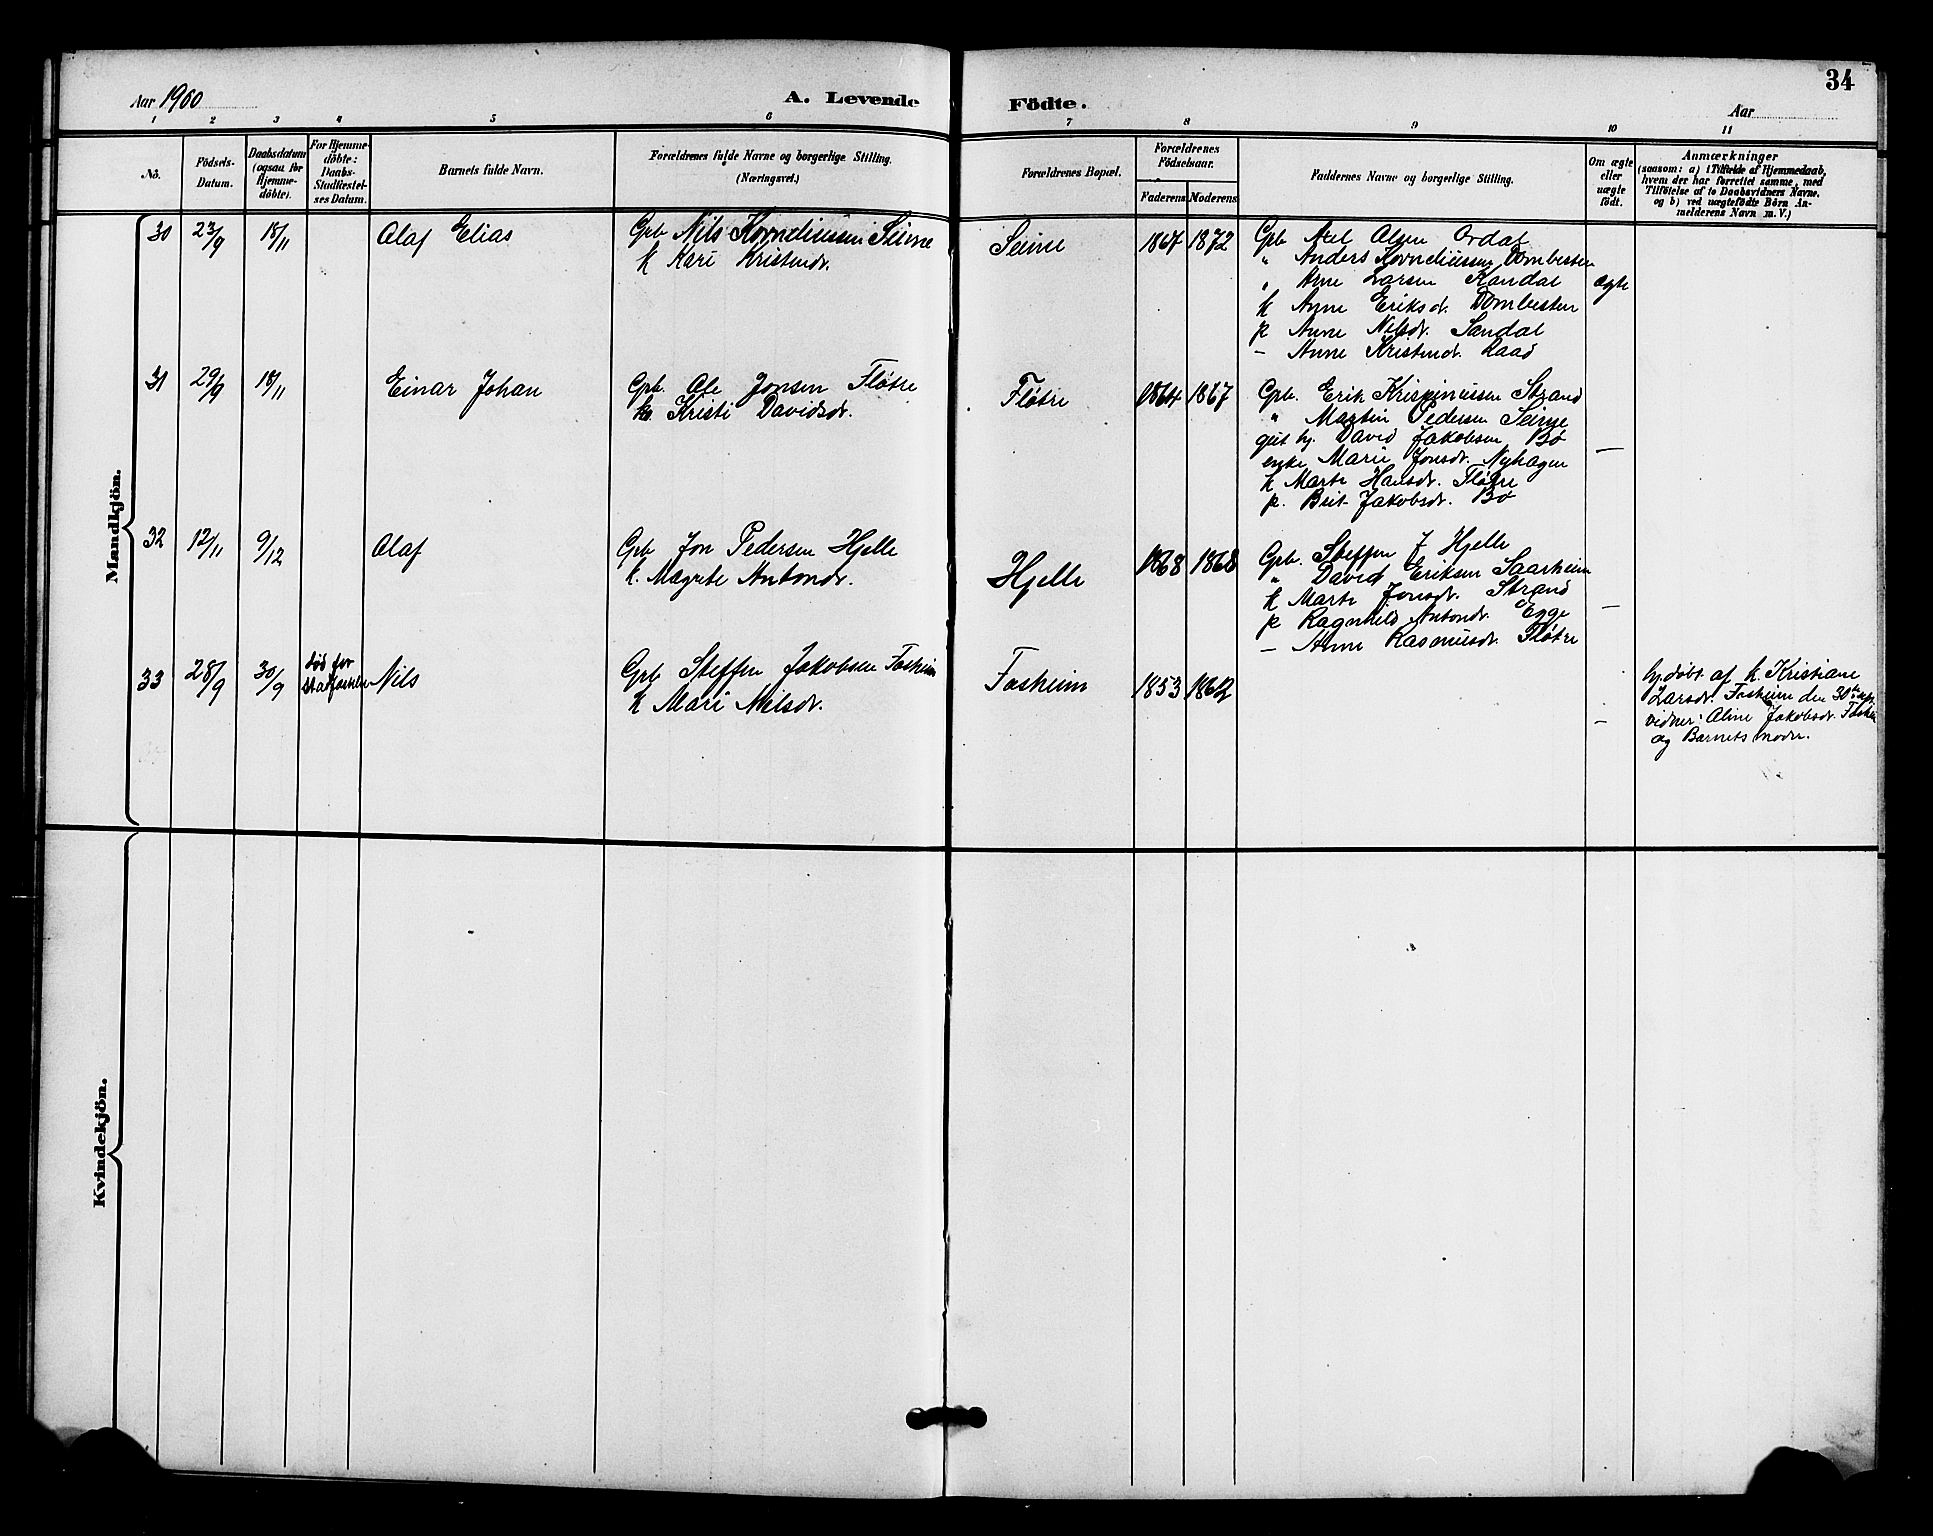 34
Aar 1900
A. Levende Födte.
Aar
1 2 3 4 5 6 7 8 9 10 11
No.
Födsels-Datum.
Daabsdatum (ogsaa for Hjemme-döbte).
For Hjemme-döbte: Daabs-Stadfæstel-ses Datum.
Barnets fulde Navn.
Forældrenes fulde Navne og borgerlige Stilling. (Næringsvei.)
Forældrenes Bopæl.
Forældrenes Födselsaar.
Faderens Moderens
Faddernes Navne og borgerlige Stilling.
Om ægte eller uægte födt.
Anmærkninger
(saasom: a) i Tilfælde af Hjemmedaab,
hvem der har forrettet samme, med
Tilföielse af to Daabsvidners Navne.
og b) ved uægtefödte Börn An-
melderens Navn m. V.)
Mandkjön.
30 23/9 18/11 Olaf Elias
Gpb Nils Korneliussen Seime
k Kari Kristendr.
Seime 1867 1872
Gpb Ole Olsen Ordal
" Anders Korneliussen Dombesten
" Arne Larsen Kandal
k Anne Eriksdr. Dombesten
p Anne Nilsdr. Sandal
– Anne Kristendr. Raad
ægte
31 29/9 18/11 Einar Johan
Gpb. Ole Jonsen Fløtre
k. Kristi Davidsdr.
Fløtre 1864 1867
Gpb. Erik Krispinussen Strand
" Martin Pedersen Seime
gut hj. David Jakobsen Bø
enke Marie Jonsdr. Nyhagen
k Marte Hansdr. Fløtre
p. Brit Jakobsdr. Bø
—
32 12/11 9/12 Olaf
Gpb Jon Pedersen Hjelle
k. Magrete Antondr.
Hjelle 1868 1868
Gpb. Steffen J Hjelle
" David Eriksen Saarheim
k Marte Jonsdr. Strand
p Ragnhild Antondr. Egge
– Anne Rasmusdr. Fløtre
—
33 28/9 30/9 død før stadfæstelse Nils
Gpb Steffen Jakobsen Fosheim
k Mari Nilsdr.
Fosheim 1853 1862
—
hj.døbt af k. Kristiane
Larsdr. Fosheim den 30te sept.
vidner: Oline Jakobsdr. Foshei
og Barnets moder.
Kvindekjön.